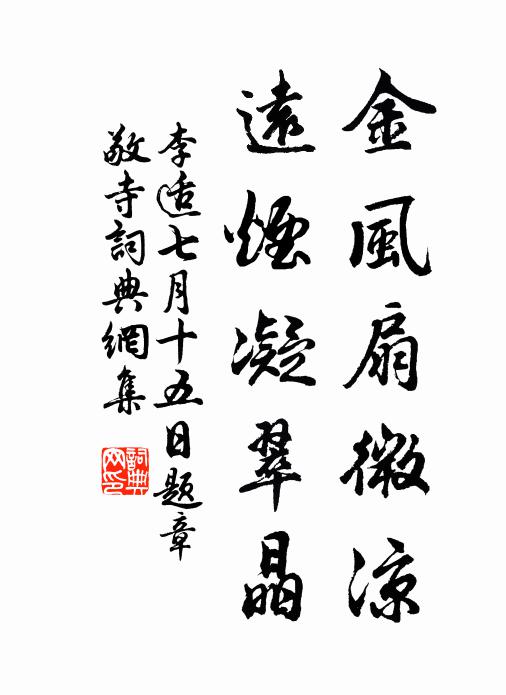 金風扇微涼
遠煙凝翠晶
李适七月十五日題章
敬寺詞典網集
詞典
网印